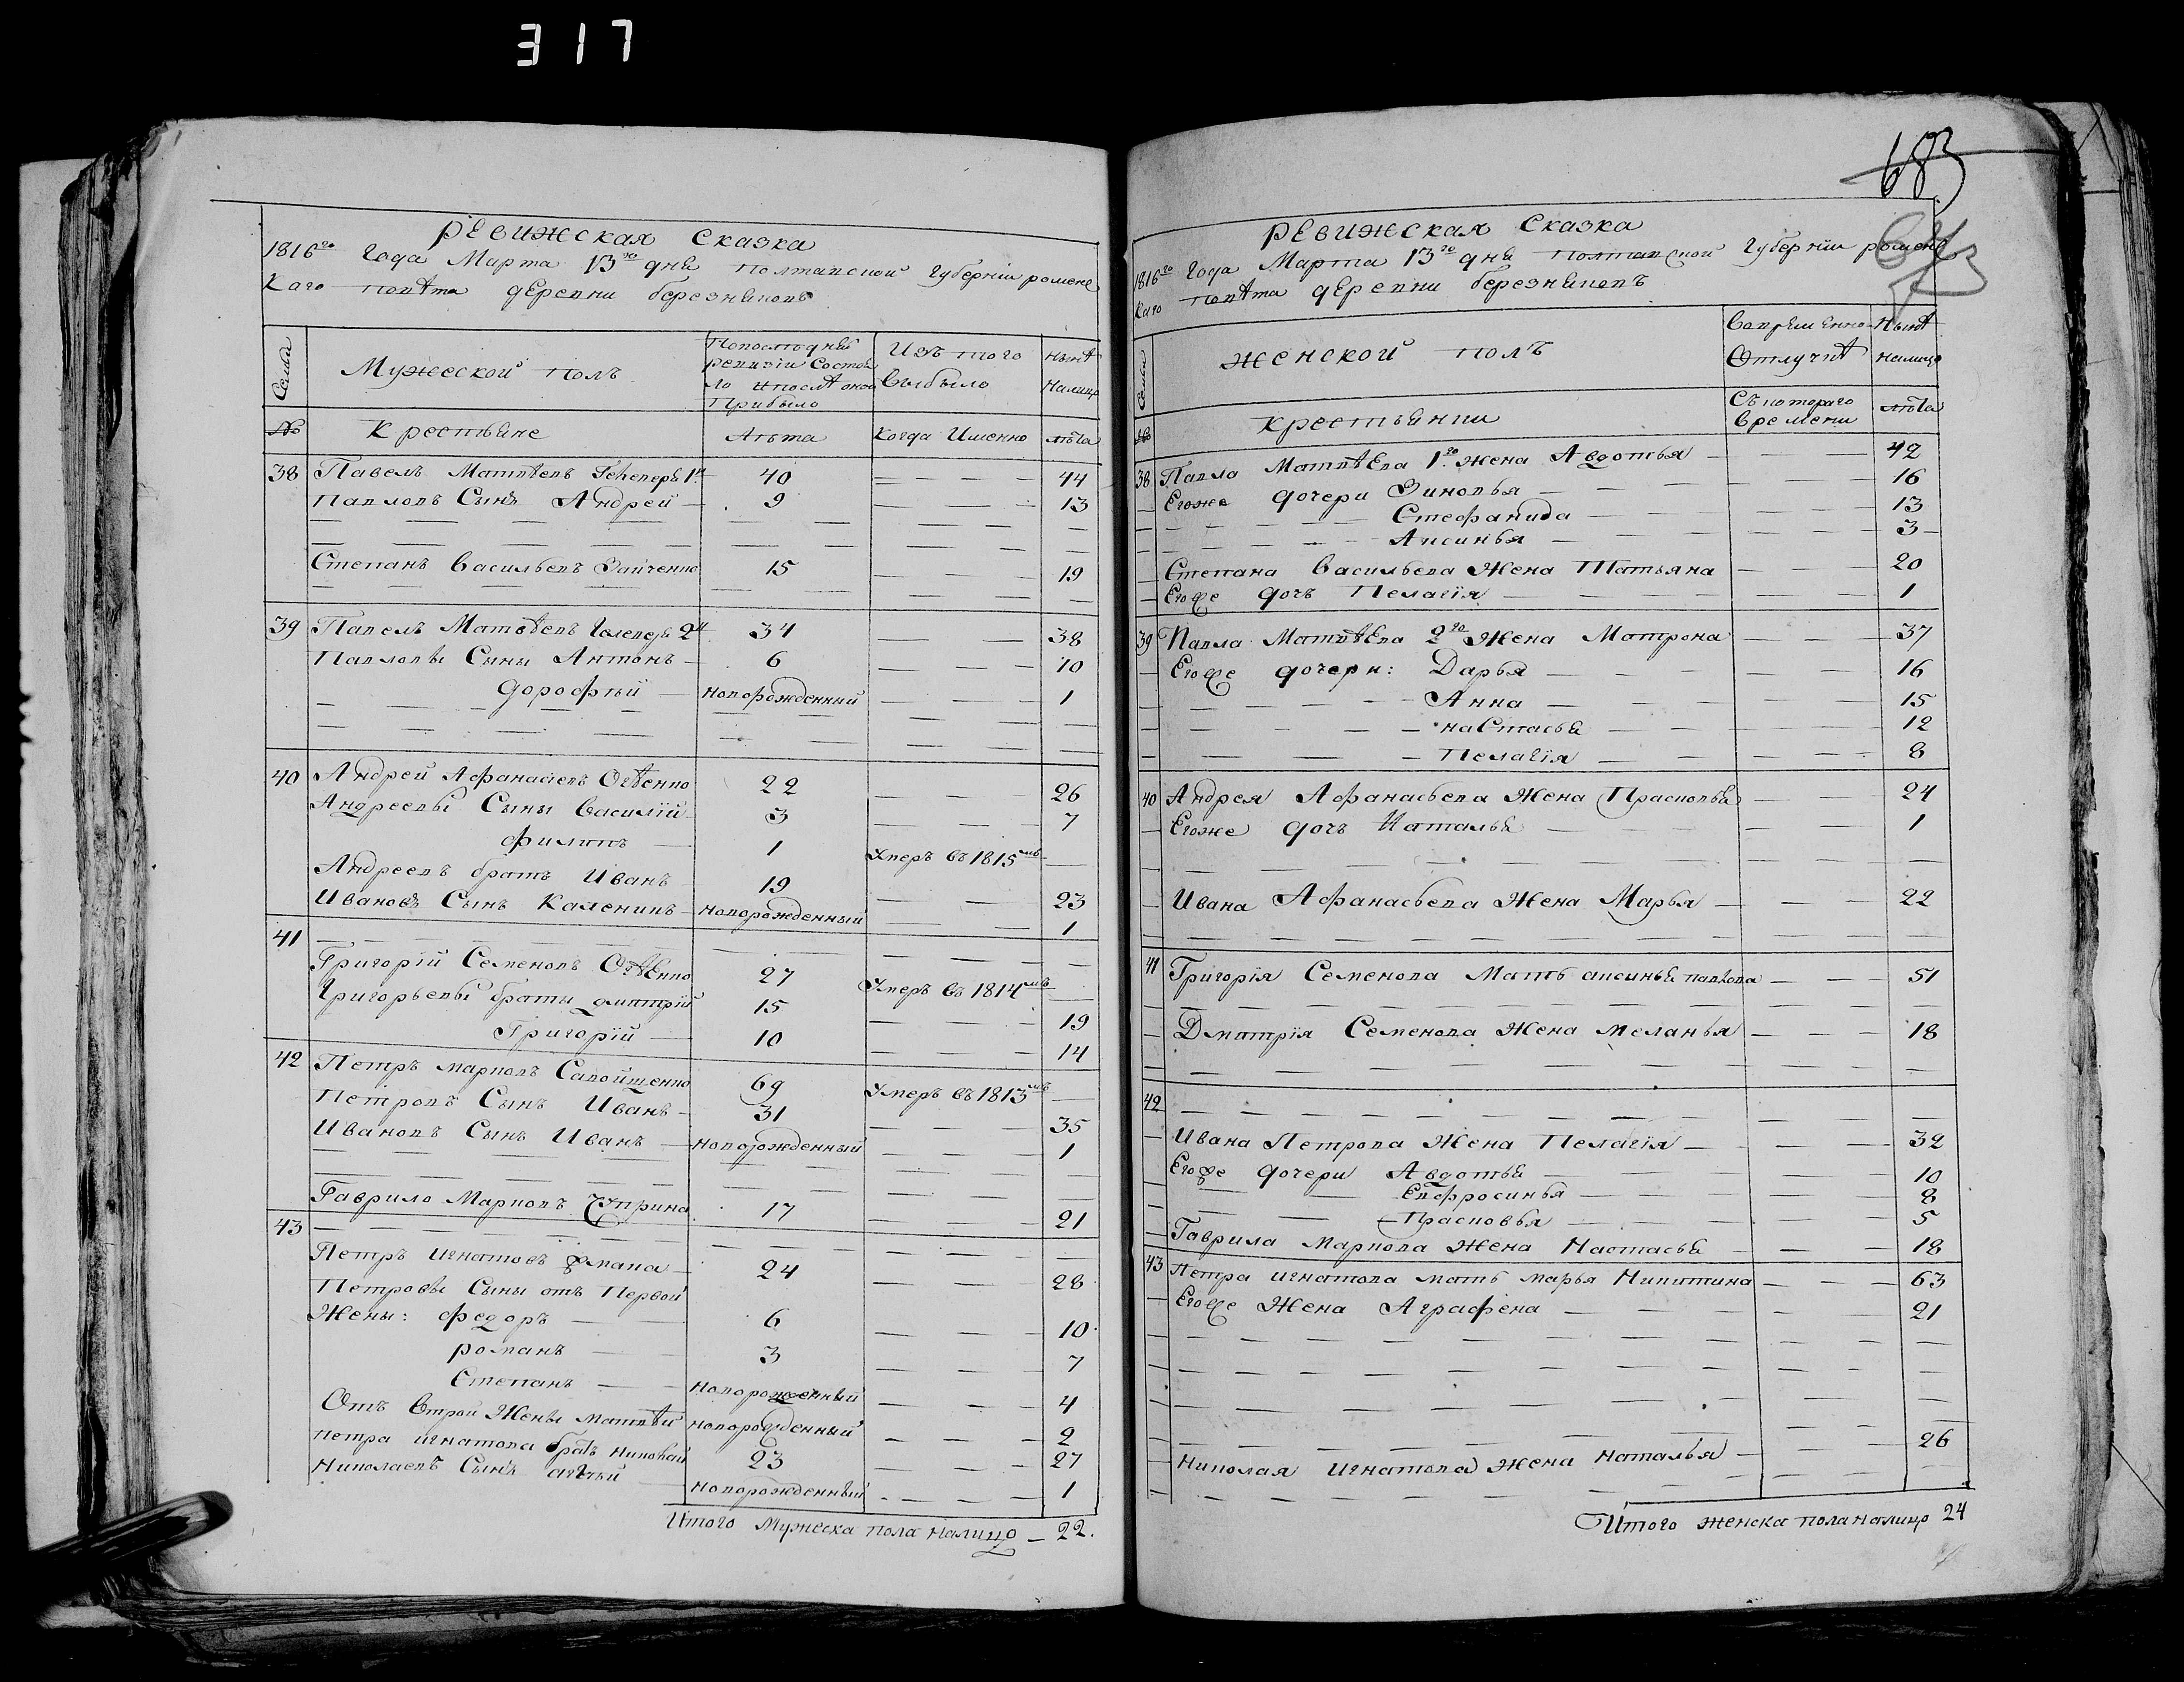 317
РЕВИЖСКАЯ Сказка
1816го Года Марта 13го дня Полтавской Губерніи ромен
каго повѣта дЕревни березняковъ
Семьи
Мужеской полъ
Попослѣдней
ревизіи Состоя
ло ипослѣ оной
Прибыло
Изъ того
Выбыло
Нынѣ
Налицо
№
Крестьяне
Лѣта
Когда Именно
лѣта
38 Павелъ Матвѣевъ 1й 40 — — — 44
Павловъ Сынъ Андрей — 9 — — — 13
Степанъ Васильевъ Зайченко 15 — — — 19
39 Павелъ Матвѣевъ 2й 34 — — — 38
Павловы Сыны Антонъ — 6 — — — 10
Дорофѣй — новорожденный — — — 1
40 Андрей Афанасіевъ Огѣенко 22 — — — 26
Андреевы Сыны Василій 3 — — — 7
филипъ — 1 Умеръ въ 1815мъ —
Андреевъ братъ Иванъ 19 — — — 23
Ивановъ Сынъ Каленикъ — новорожденный — — — 1
41
Григорій Семеновъ ОгѣЕнко 27 Умеръ въ 1814мъ —
Григорьевы браты дмитрій 15 — — — 19
Григорій — 10 — — — 14
42 Петръ марковъ 69 Умеръ въ 1813мъ —
Петровъ Сынъ Иванъ — 31 — — — 35
Ивановъ Сынъ Иванъ — новорожденный — — — 1
Гаврило Марковъ Чуприна 17 — — — 21
43
Петръ игнатовъ 24 — — — 28
Петровы Сыны отъ Первой
Жены: федоръ — 6 — — — 10
романъ — 3 — — — 7
Степанъ — новорожденный — — — 4
Отъ Втрой Жены матвѣй новорожденный — — — 2
петра игнатова братъ николай 23 — — — 27
николаевъ Сынъ новорожденный — — — 1
Итого Мужеска пола налицо — 22.
683
РЕВИЖСКАЯ Сказка
1816го Года Марта 13го дня Полтавской Губерніи ромен
каго повѣта дЕревни березняковъ
Семьи
женской полъ
Вовремѣнно
Отлучкѣ
Нынѣ
налицо
№
крестьянки
Съкотораго
времени
лѣта
38 Павла МатвѣЕва 1го жена Авдотья — — — 42
Егоже дочери Зиновья — — — 16
Стефанида — — — 13
Аксинья — — — 3
Степана Васильева Жена Татьяна — — — 20
Егоже дочь Пелагія — — — 1
39 Павла МатвѣЕва 2го Жена Матрона — — — 37
Егоже дочери: Дарья — — — 16
Анна — — — 15
наСтасья — — — 12
Пелагія — — — 8
40 Андрея Афанасьева Жена Прасковья — — — 24
Егоже дочь Наталья — — — 1
Ивана Афанасьева Жена Марья — — — 22
41 Григорія Семенова Мать аксинья павлова — — — 51
Дмитрія Семенова Жена меланья — — — 18
42
Ивана Петрова Жена Пелагія — — — 32
Егоже дочери Авдотья — — — 10
Евфросинья — — — 8
Прасковья — — — 5
Гаврила Маркова Жена Настасья — — — 18
43 Петра игнатова мать марья Никитина — — — 63
Егоже Жена Аграфена — — — 21
Николая Игнатова Жена Наталья — — — 26
Итого женска пола налицо 24